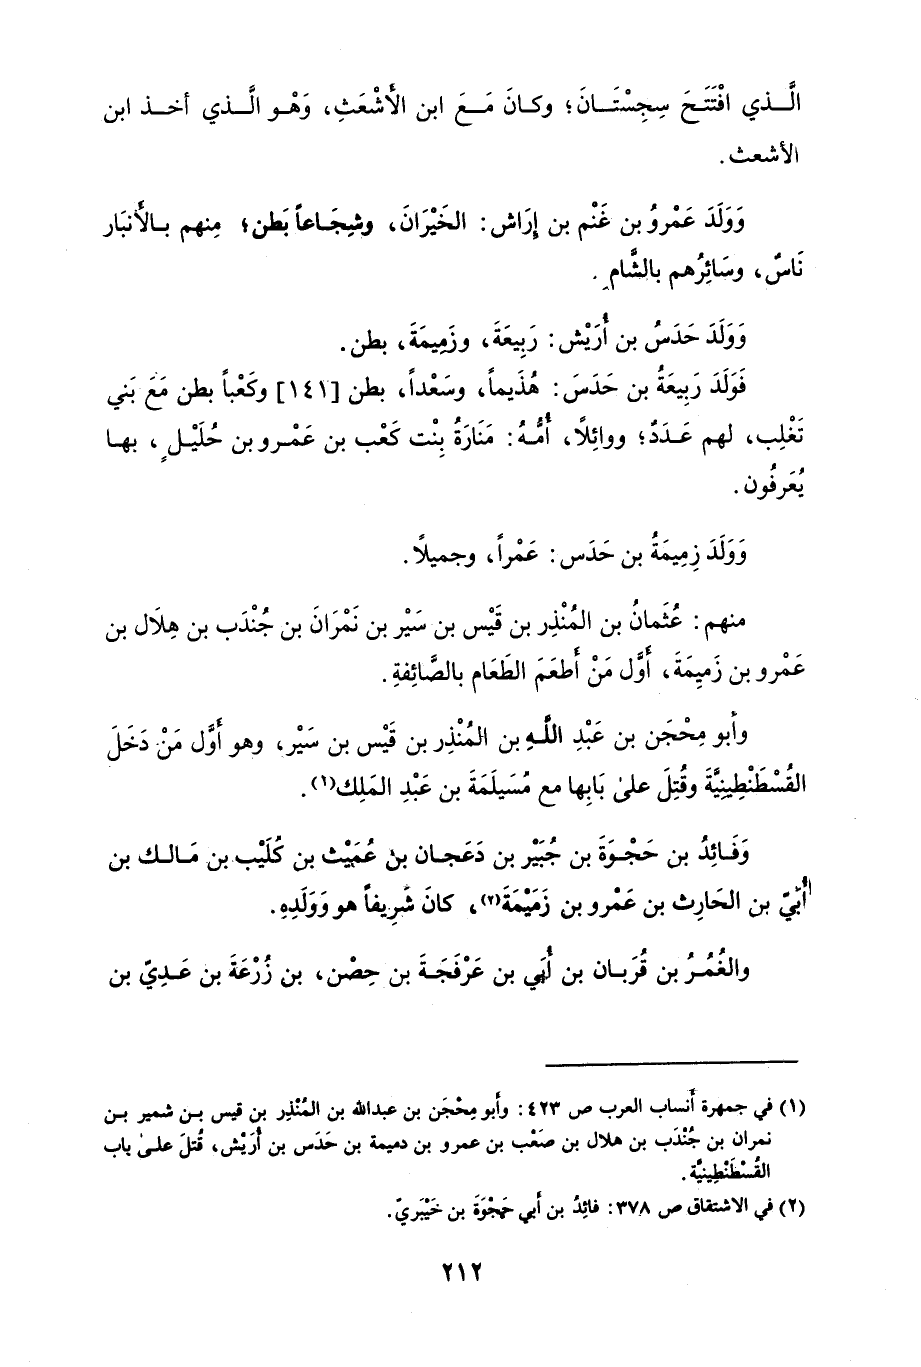 الَّذي افْتَتَحَ سِجِسْتَانَ؛ وكانَ مَعَ ابن الأَشْعَثِ، وَهْو الَّذي أخذ ابن
الأشعث.
وَوَلَدَ عَمْرُو بن غَنْم بن إِرَاش: الخَيْرَانَ، وشِجَاعاً بَطن؛ مِنهم بالأَنْبَار
نَاسٌ، وسَائِرُهم بالشَّامِ.
وَوَلَدَ حَدَسُ بن أُرَيْش: رَبِيعَةَ، وزَمِيمَةَ، بطن.
فَوَلَدَ رَبِيعَةُ بن حَدَسَ: هُذَيماً، وسَعْداً، بطن [١٤١] وكَعْباً بطن مَعَ بَني
تَغْلِب، لهم عَدَدٌ؛ ووائِلاً، أُمُّهُ: مَنَارَةُ بِنْت كَعْب بن عَمْرو بن حُلَيْلٍ، بها
يُعَرفُون.
وَوَلَدَ زمِيمَةُ بن حَدَس: عَمْراً، وجميلاً.
منهم: عُثمانُ بن المُنْذِر بن قَيْس بن سَيْر بن نَمْرَانَ بن جُنْدَب بن هِلَال بن
عَمْرو بن زَمِيمَةَ، أَوَّل مَنْ أَطعَمَ الطَعَام بالصَّائِفةِ.
وأبو مِحْجَن بن عَبْدِ اللَّهِ بن المُنْذِر بن قَيْس بن سَيْر، وهو أَوَّل مَنْ دَخَلَ
القُسْطَنْطِينِيَّةَ وقُتِلَ علىٰ بَابِها مع مُسَيلَمَة بن عَبْدِ المَلِك(١).
وَفَائِدُ بن حَجْوَةَ بن جُبَيْر بن دَعَجان بن عُمَيْث بن كُلَيْب بن مَالك بن
أُبَيّ بن الحَارِث بن عَمْرو بن زَمَيْمَةَ(٢)، كانَ شَرِيفاً هو وَوَلَدِهِ.
والغُمُرُ بن قُرَبان بن أُبَي بن عَرْفَجَةَ بن حِصْن، بن زُرْعَةَ بن عَدِيّ بن
(١) في جمهرة أنساب العرب ص ٤٢٣: وأبو مِحْجَن بن عبدالله بن المُنْذِر بن قيس بن شمير بن
نمران بن جُنْدَب بن هلال بن صَعْب بن عمرو بن دميمة بن حَدَس بن أُرَيْش، قُتلَ علىٰ باب
القُسْطَنْطِينيَّة.
(٢) في الاشتقاق ص ٣٧٨: فائِدُ بن أبي حَجْوَة بن خَيْبَريّ.
٢١٢